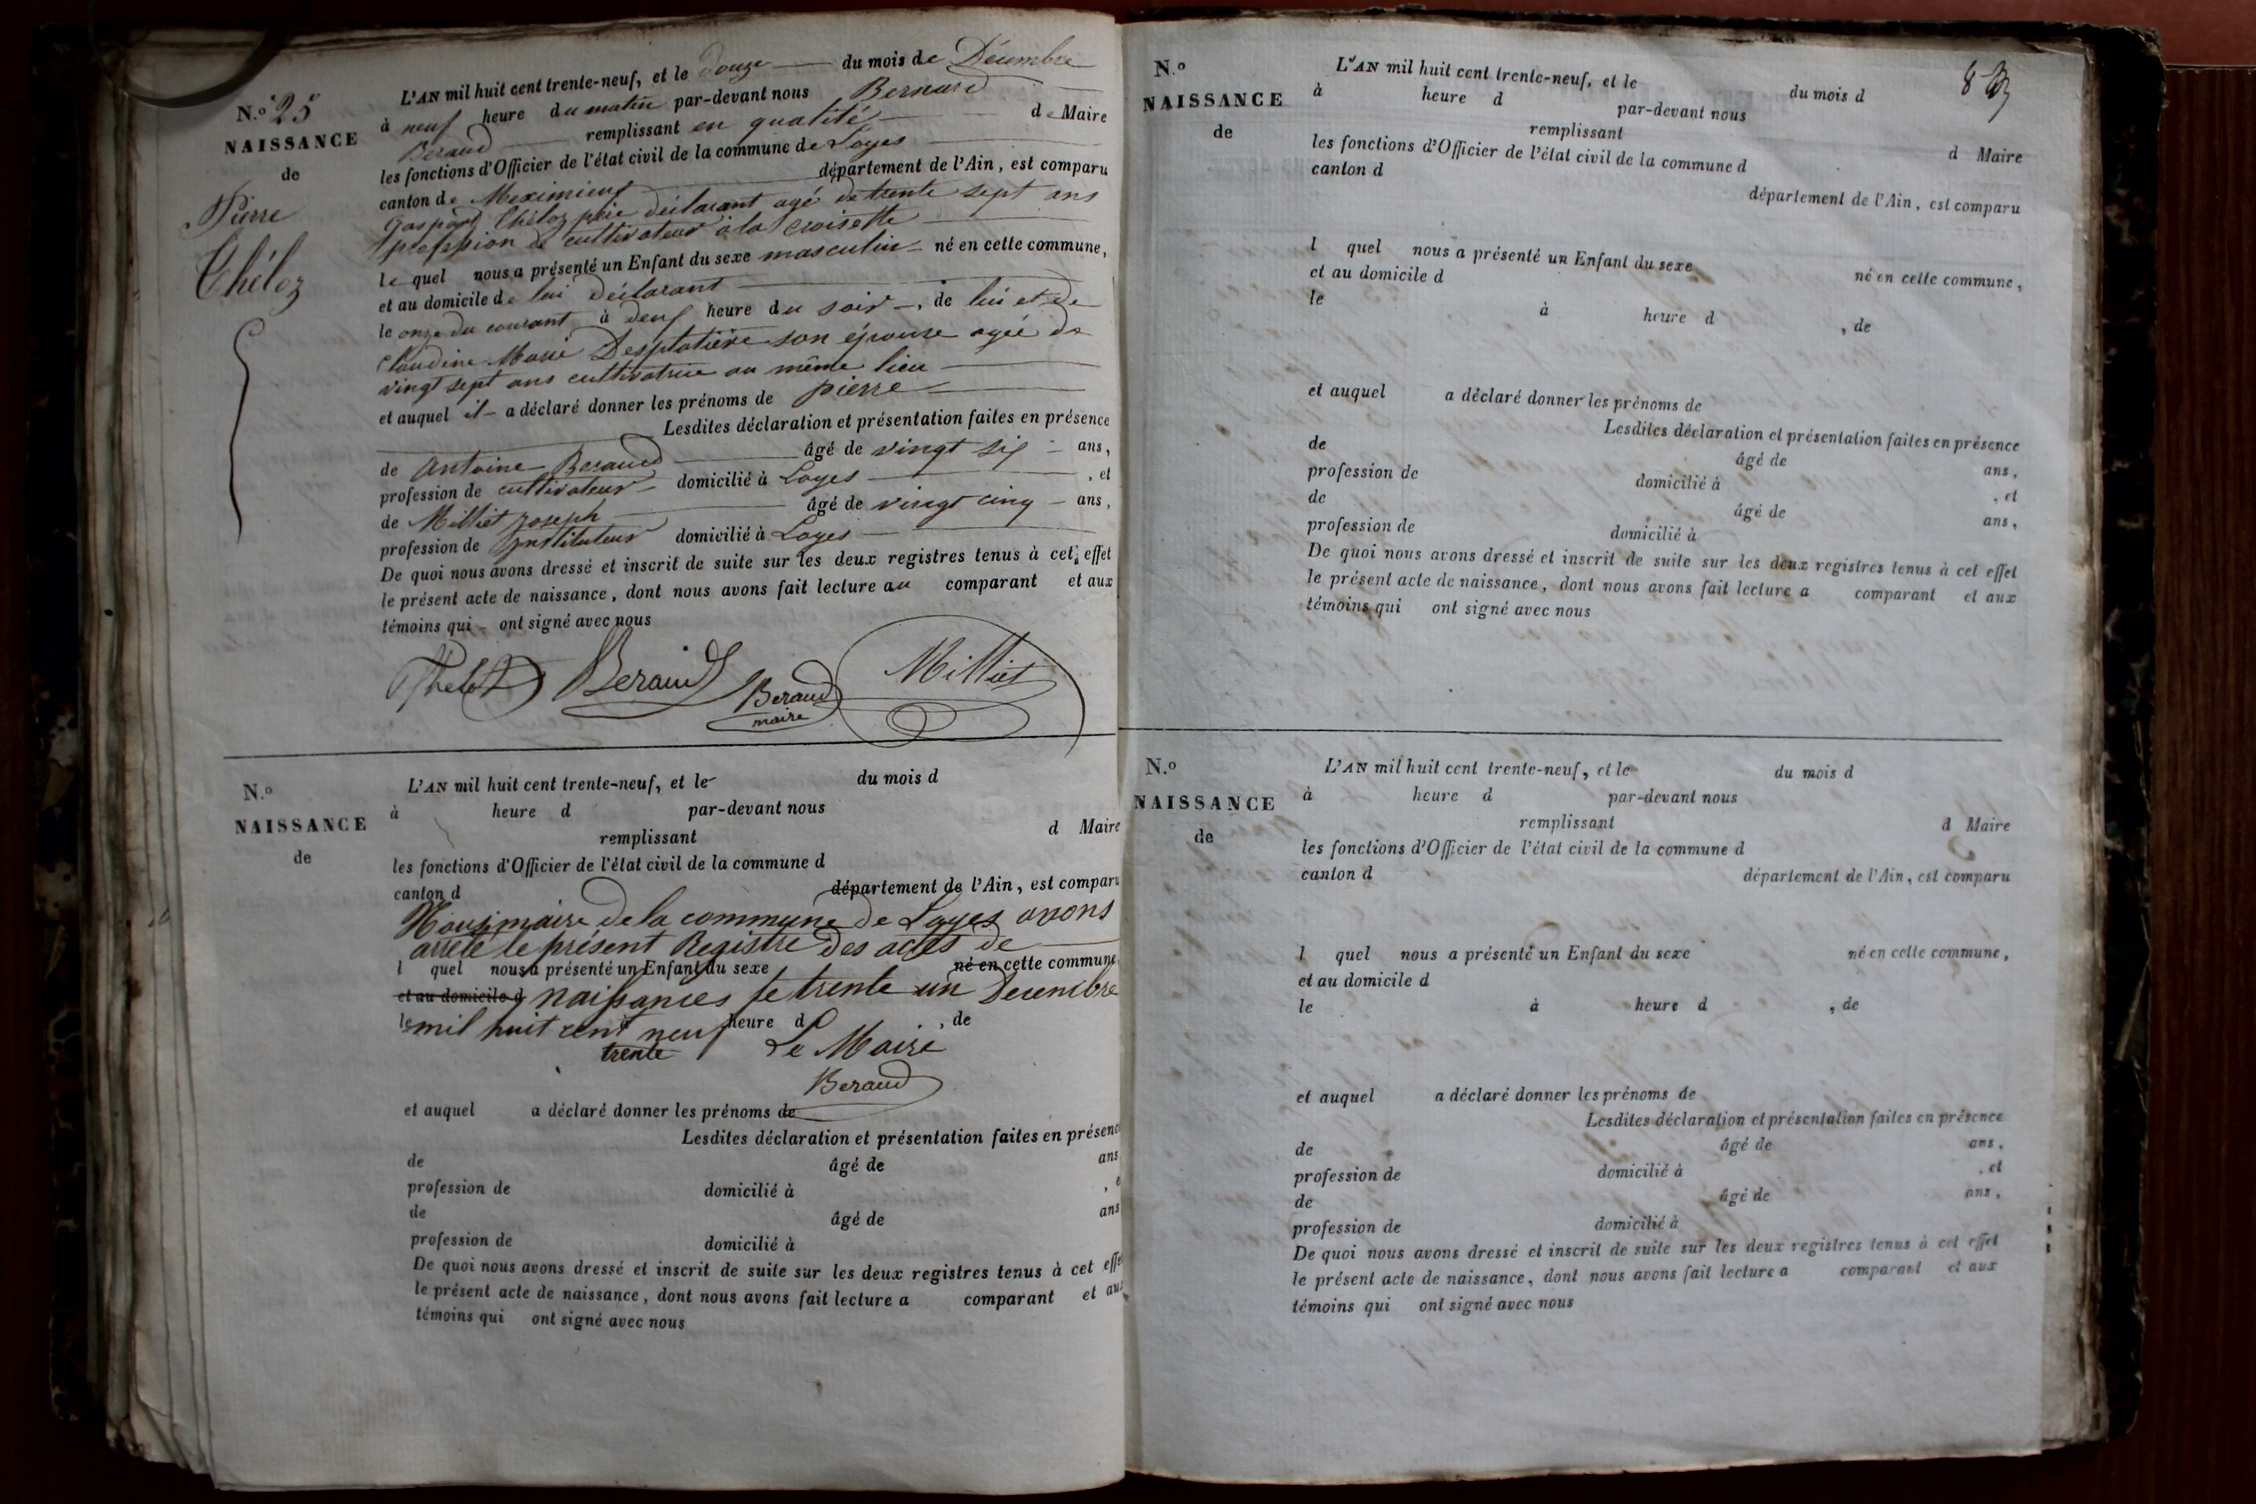 N.º 25
NAISSANCE
de
Pierre
Théloz
L'AN mil huit cent trente-neuf, et le douze du mois de Décembre
à neuf heure du matin par-devant nous Bernard
Beraud remplissant en qualité de Maire
les fonctions d'Officier de l'état civil de la commune de Loyes
canton de Meximieux département de l'Ain, est comparu
Gaspard Théloz père déclarant agé de trente sept ans
profession de cultivateur à la croisette
lequel nous a présenté un Enfant du sexe masculin né en cette commune,
et au domicile de lui déclarant
le onze du courant à deux heure du soir, de lui et de
Claudine Marie Desplatière son épouse agée de
vingt sept ans cultivatrice au même lieu
et auquel il a déclaré donner les prénoms de pierre
Lesdites déclaration et présentation faites en présence
de Antoine Beraud âgé de vingt six ans,
profession de cultivateur domicilié à Loyes, et
de Milliet Joseph âgé de vingt cinq ans,
profession de Instituteur domicilié à Loyes
De quoi nous avons dressé et inscrit de suite sur les deux registres tenus à cet effet
le présent acte de naissance, dont nous avons fait lecture au comparant et aux
témoins qui ont signé avec nous
Beraud Beraud Milliet
maire
N.º
NAISSANCE
de
L'AN mil huit cent trente-neuf, et le du mois d
à heure d par-devant nous
remplissant d Maire
les fonctions d'Officier de l'état civil de la commune d
canton d département de l'Ain, est comparu
Nous maire de la commune de Loyes avons
arrêté le présent Registre des actes de
l quel nous a présenté un Enfant du sexe né en cette commune
et au domicile d naissances le trente un Decembre
le mil huit cent neuf heure d , de
trente Le Maire
Beraud
et auquel a déclaré donner les prénoms de
Lesdites déclaration et présentation faites en présenc
de âgé de ans
profession de domicilié à , e
de âgé de ans
profession de domicilié à
De quoi nous avons dressé et inscrit de suite sur les deux registres tenus à cet effe
le présent acte de naissance, dont nous avons fait lecture a comparant et aux
témoins qui ont signé avec nous
N.º
NAISSANCE
de
L'AN mil huit cent trente-neuf, et le du mois d
à heure d par-devant nous
remplissant d Maire
les fonctions d'Officier de l'état civil de la commune d
canton d département de l'Ain, est comparu
l quel nous a présenté un Enfant du sexe né en cette commune,
et au domicile d
le à heure d , de
et auquel a déclaré donner les prénoms de
Lesdites déclaration et présentation faites en présence
de âgé de ans,
profession de domicilié à , et
de âgé de ans,
profession de domicilié à
De quoi nous avons dressé et inscrit de suite sur les deux registres tenus à cet effet
le présent acte de naissance, dont nous avons fait lecture a comparant et aux
témoins qui ont signé avec nous
N.º
NAISSANCE
de
L'AN mil huit cent trente-neuf, et le du mois d
à heure d par-devant nous
remplissant d Maire
les fonctions d'Officier de l'état civil de la commune d
canton d département de l'Ain, est comparu
l quel nous a présenté un Enfant du sexe né en cette commune,
et au domicile d
le à heure d , de
et auquel a déclaré donner les prénoms de
Lesdites déclaration et présentation faites en présence
de âgé de ans,
profession de domicilié à , et
de âgé de ans,
profession de domicilié à
De quoi nous avons dressé et inscrit de suite sur les deux registres tenus à cet effet
le présent acte de naissance, dont nous avons fait lecture a comparant et aux
témoins qui ont signé avec nous